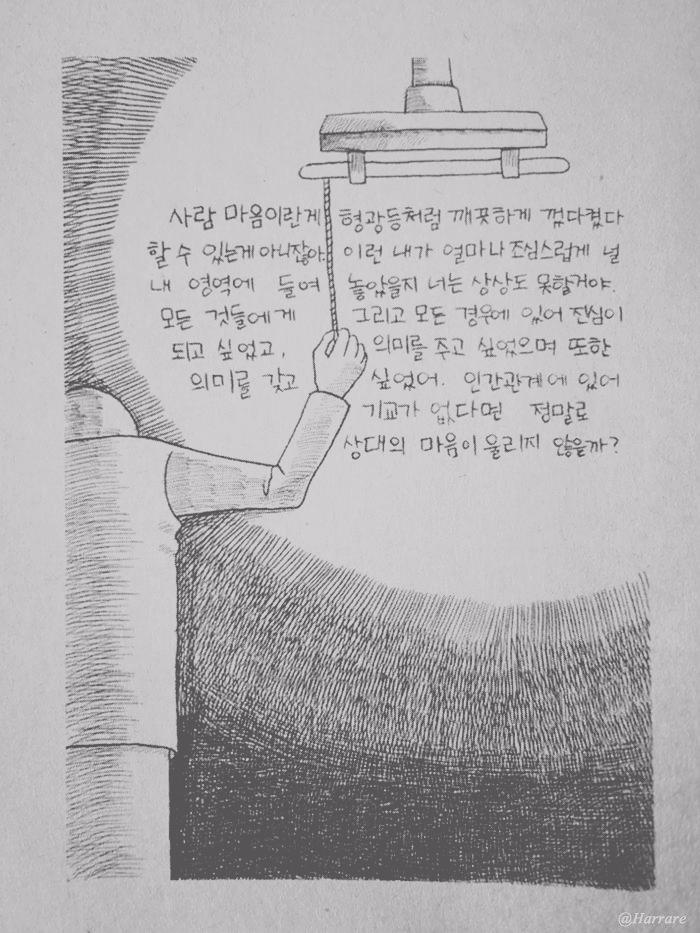 사람 마음이란게 형광등처럼 깨끗하게 껐다켰다
할 수 있는게 아니잖아. 이런 내가 얼마나 조심스럽게 널
내 영역에 들여 놓았을지 너는 상상도 못할거야.
모든 것들에게 그리고 모든 경우에 있어 진심이
되고 싶었고, 의미를 주고 싶었으며 또한
의미를 갖고 싶었어. 인간관계에 있어
기교가 없다면 정말로
상대의 마음이 울리지 않을까?
@Harrare